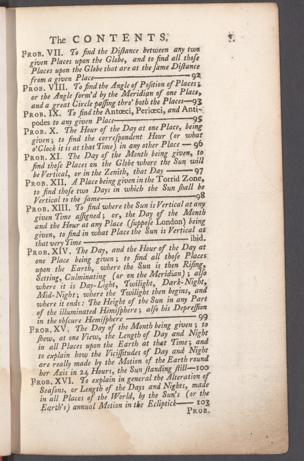 The CONTENTS. v.
PROB. VII. To find the Distance between any two
given Places upon the Globe, and to find all those
Places upon the Globe that are at the same Distance
from a given Place — 92
PROB. VIII. To find the Angle of Position of Places;
or the Angle form'd by the Meridian of one Place,
and a great Circle passing thro' both the Places — 93
PROB. IX. To find the Antœci, Periœci, and Anti-
podes to any given Place — 95
PROB. X. The Hour of the Day at one Place, being
given; to find the correspondent Hour (or what
o'Clock it is at that Time) in any other Place — 96
PROB. XI. The Day of the Month being given, to
find those Places on the Globe where the Sun will
be Vertical, or in the Zenith, that Day — 97
PROB. XII. A Place being given in the Torrid Zone,
to find those two Days in which the Sun shall be
Vertical to the same — 98
PROB. XIII. To find where the Sun is Vertical at any
given Time assigned; or, the Day of the Month
and the Hour at any Place (suppose London) being
given, to find in what Place the Sun is Vertical at
that very Time — ibid.
PROB. XIV. The Day, and the Hour of the Day at
one Place being given; to find all those Places
upon the Earth, where the Sun is then Rising,
Setting, Culminating (or on the Meridian); also
where it is Day-Light, Twilight, Dark-Night,
Mid-Night; where the Twilight then begins, and
where it ends: The Height of the Sun in any Part
of the illuminated Hemisphere; also his Depression
in the obscure Hemisphere — 99
PROB. XV. The Day of the Month being given; to
shew, at one View, the Length of Day and Night
in all Places upon the Earth at that Time; and
to explain how the Vicissitudes of Day and Night
are really made by the Motion of the Earth round
her Axis in 24 Hours, the Sun standing still — 100
PROB. XVI. To explain in general the Alteration of
Seasons, or Length of the Days and Nights, made
in all Places of the World, by the Sun's (or the
Earth's) annual Motion in the Ecliptick — 103
PROB.